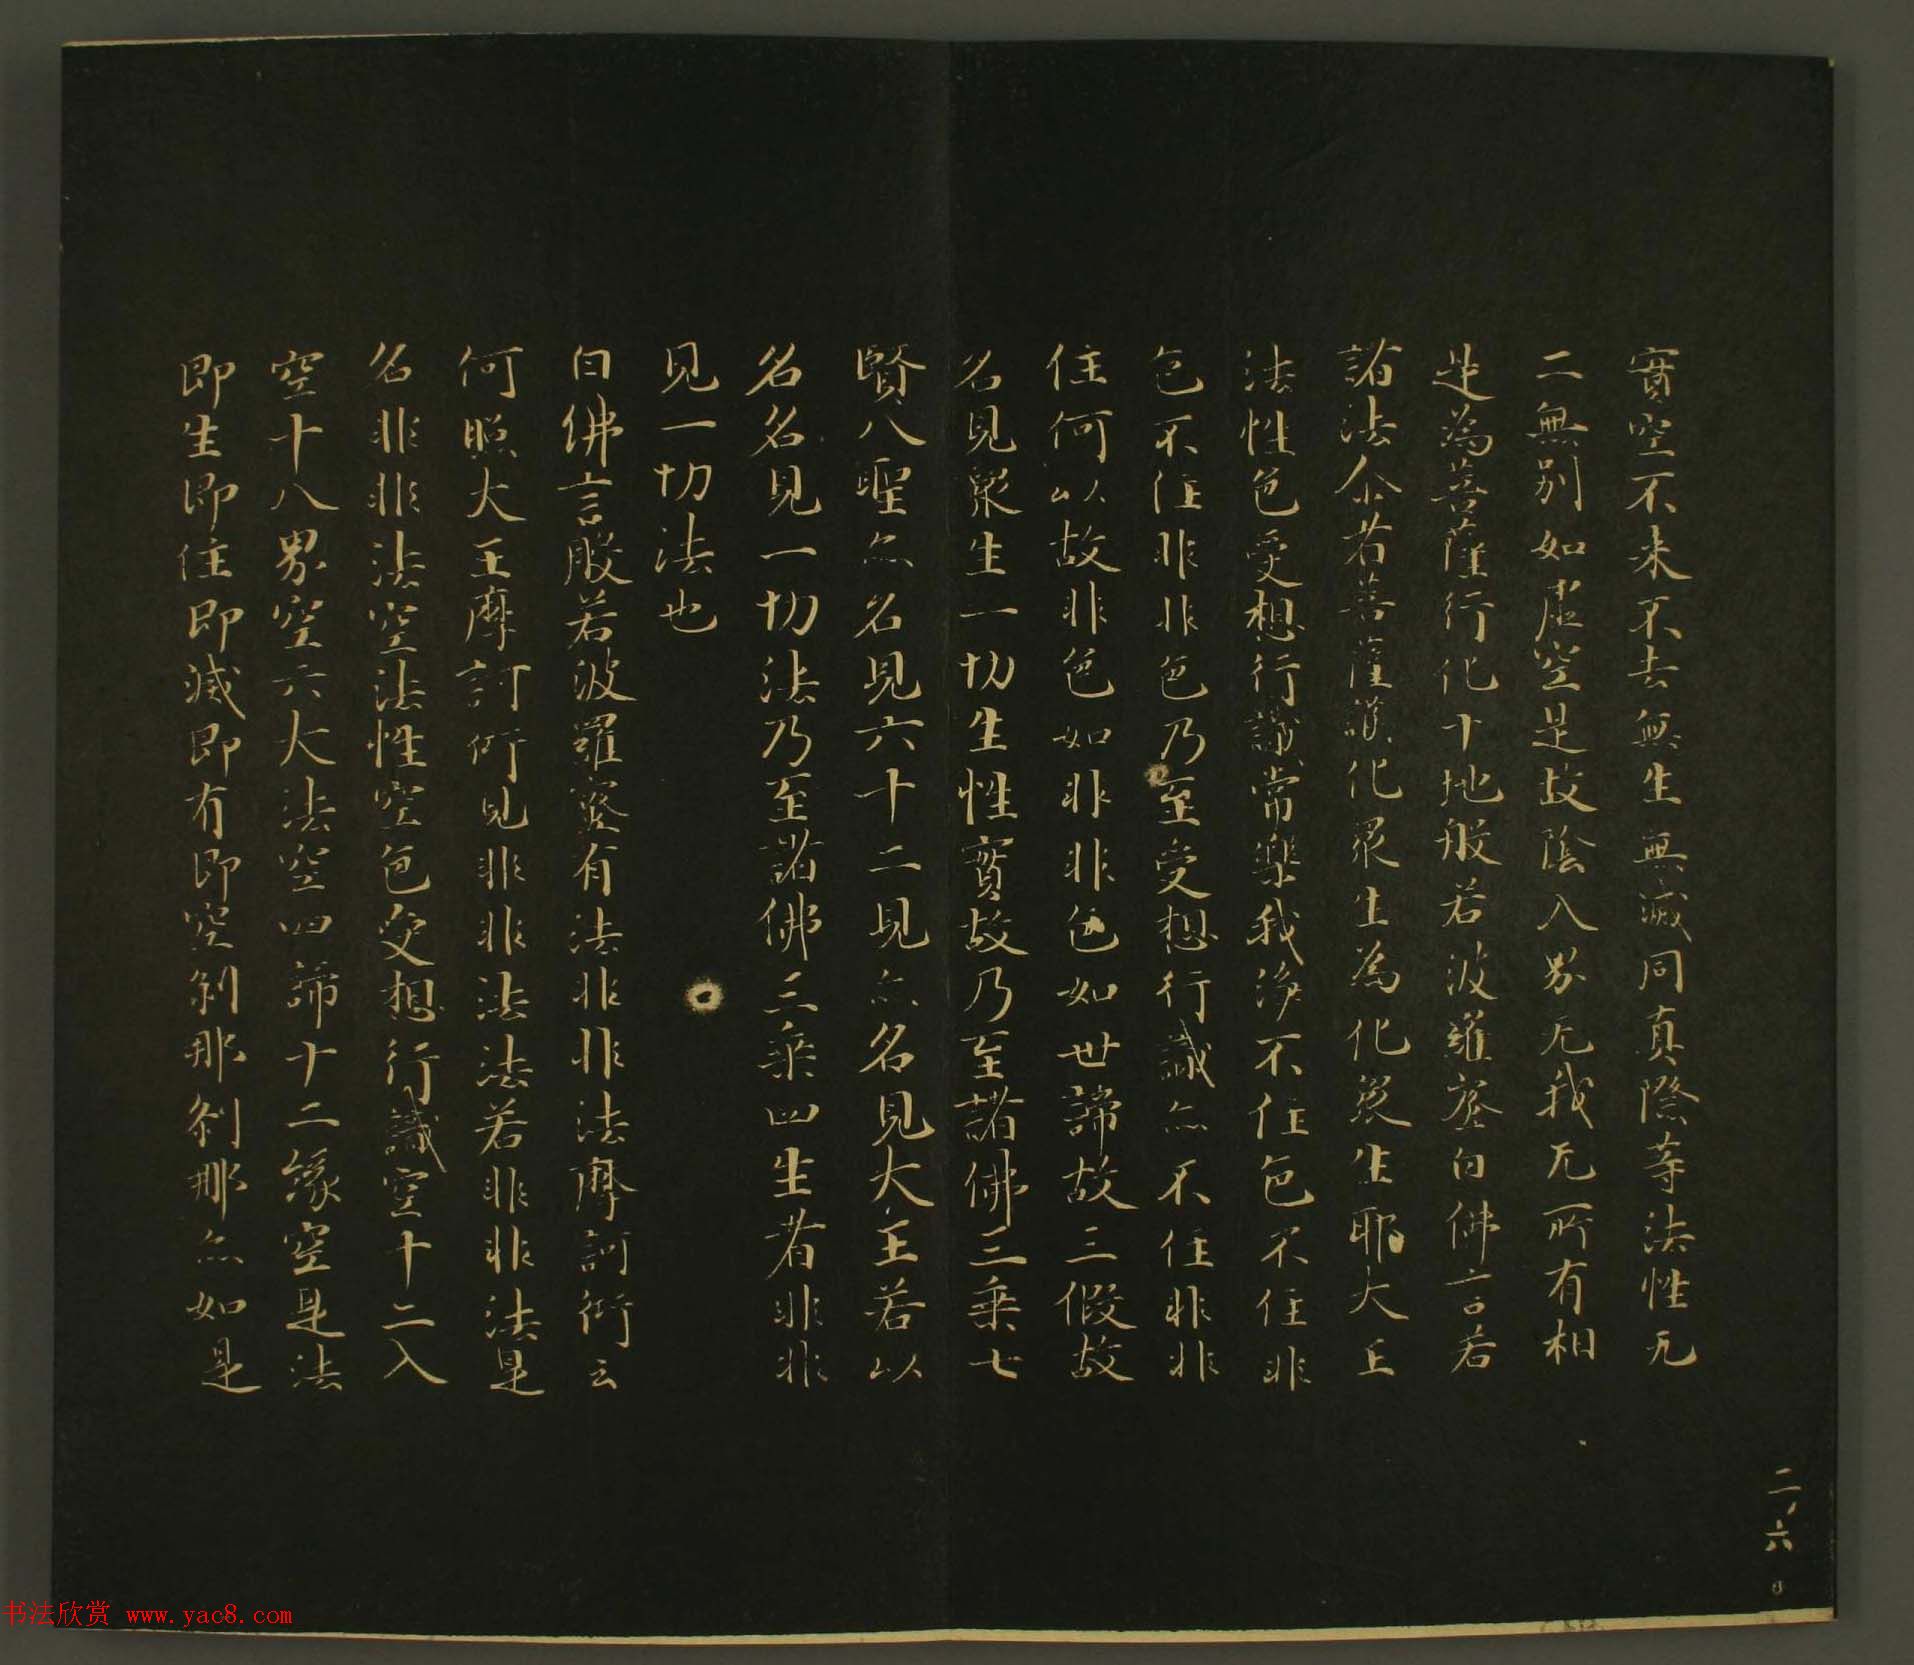 實空不来不去無生無滅同真際等法性无
二無别如虛空是故陰入界无我无所有相
是為菩薩行化十地般若波羅蜜白佛言若
諸法尒若菩薩護化眾生為化眾生耶大王
法性色受想行識常樂我淨不住色不住非
色不住非非色乃至受想行識亦不住非非
住何以故非色如非非色如世諦故三假故
名見眾生一切生性實故乃至諸佛三乘七
賢八聖亦名見六十二見亦名見大王若以
名名見一切法乃至諸佛三乘四生者非非
見一切法也
白佛言般若波羅蜜有法非非法摩訶衍云
何照大王摩訶衍見非非法法若非非法是
名非非法空法性空色受想行識空十二入
空十八界空六大法空四諦十二緣空是法
即生即住即滅即有即空剎那剎那亦如是
二、六
书法欣赏 www.yac8.com